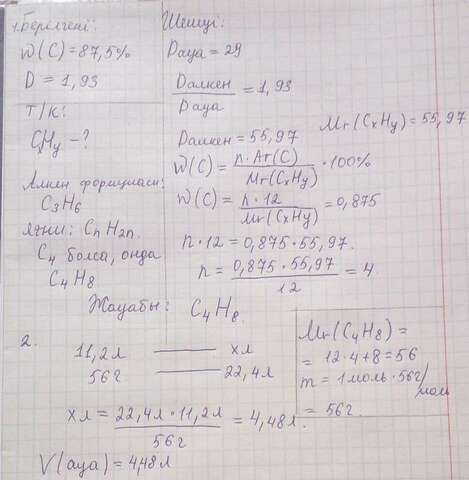 1. Берілгені:
W(C)=87,5%
D = 1,93
Т/к:
CxHy – ?
Алкен формуласы:
C3H6
яғни: CnH2n.
C4 болса, онда
C4H8
Шешуі:
Dауа = 29
Dалкен/Dауа = 1,93
Dалкен = 55,97
Mr(CxHy) = 55,97
W(C) = n·Ar(C)/Mr(CxHy) · 100%
W(C) = n·12/Mr(CxHy) = 0,875
n·12 = 0,875·55,97.
n = 0,875·55,97/12 = 4
Жауабы: C4H8.
2.
11,2л —— xл
56г —— 22,4л
xл = 22,4л·11,2л/56г = 4,48л.
V(ауа) = 4,48л
Mr(C4H8) =
= 12·4+8=56
m = 1моль·56г/моль
= 56г.